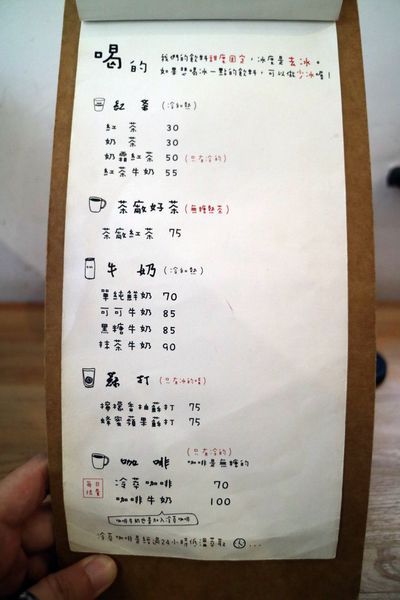 喝的
我們的飲料甜度固定，冰度是去冰。
如果想喝冰一點的飲料，可以做少冰喔！
紅茶 (冷和熱)
紅茶 30
奶茶 30
奶霜紅茶 50 (只有冷的)
紅茶牛奶 55
茶廠好茶 (無糖熱茶)
茶廠紅茶 75
牛奶 (冷和熱)
單純鮮奶 70
可可牛奶 85
黑糖牛奶 85
抹茶牛奶 90
蘇打 (只有冰的唷)
檸檬香柚蘇打 75
蜂蜜蘋果蘇打 75
咖啡 (只有冷的)
咖啡是無糖的
每日
冷萃咖啡 70
咖啡牛奶 100
咖啡牛奶也是加入冷萃咖啡
冷萃咖啡是經過24小時低溫萃取 ...